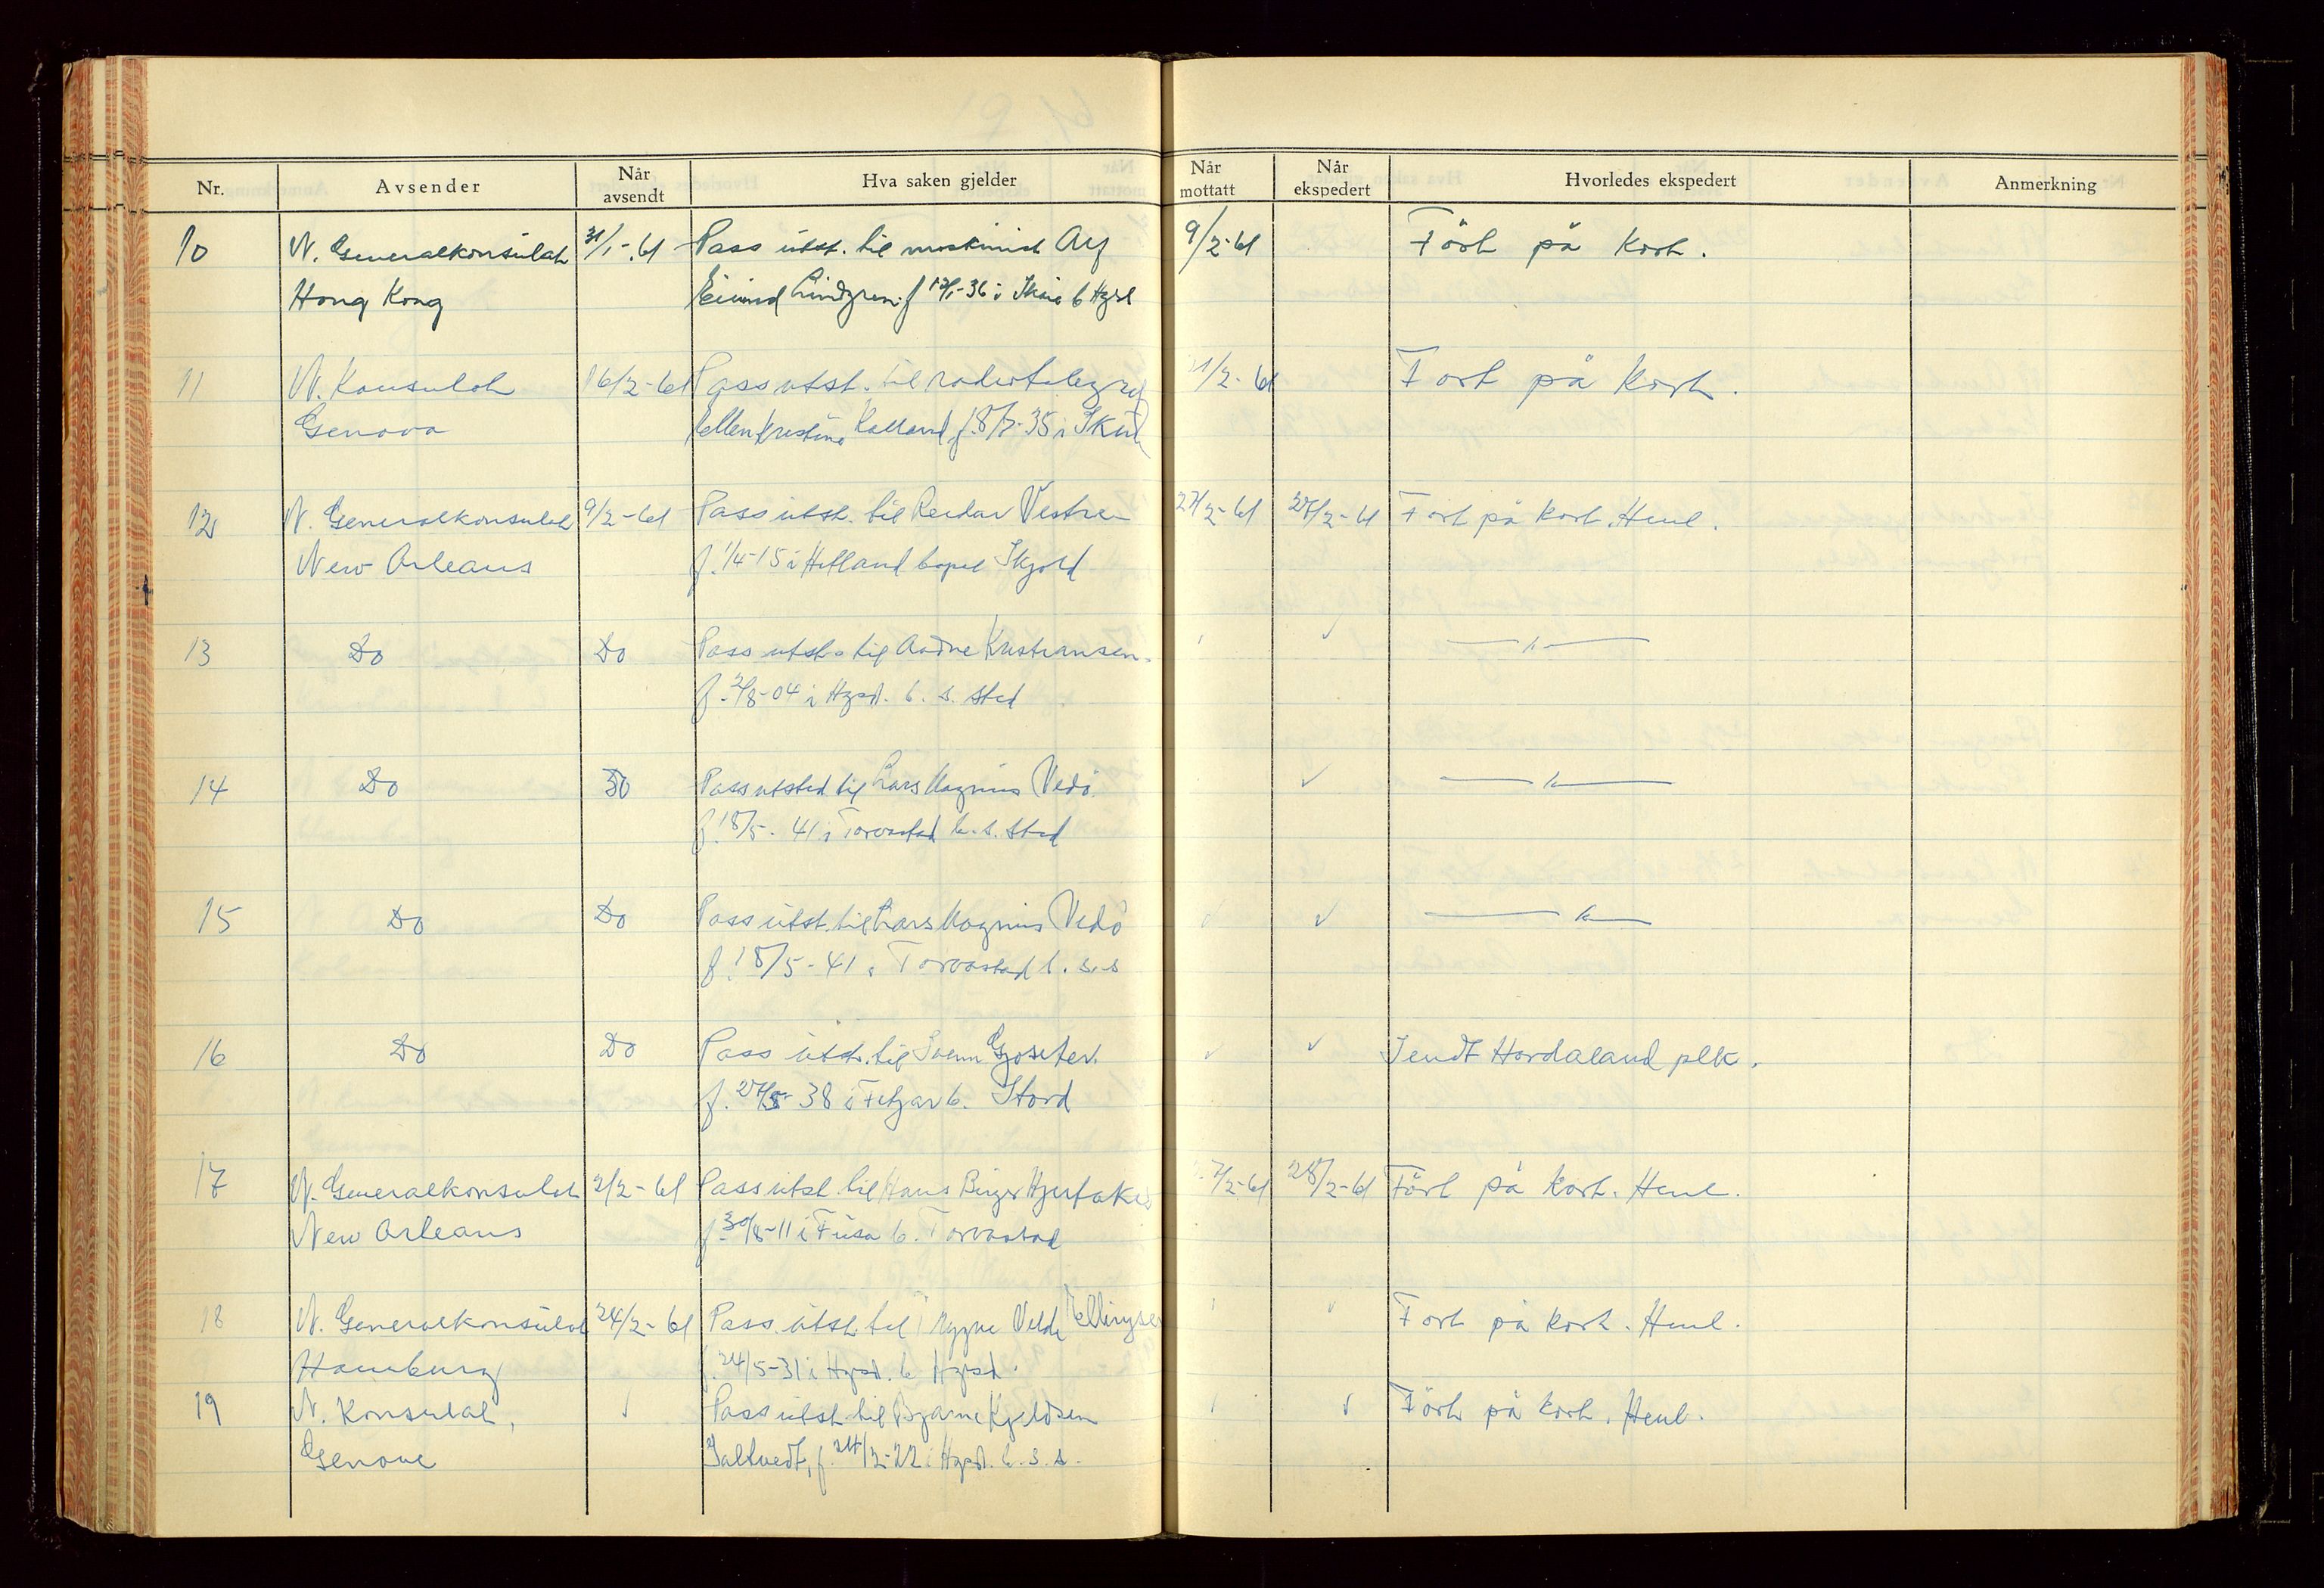 Nr. Avsender Når avsendt Hva saken gjelder Når mottatt Når ekspedert Hvorledes ekspedert Anmerkning
10 N. Generalkonsulat 31/1-61 Pass utst. til maskinist 9/2-61 Ført på kort.
Hong Kong Lindgren f. b Hgsd
11 N. Konsulat 16/2-61 Pass utst. til radiotelegraf /2-61 Ført på kort.
Genova Kalland f.
12 N. Generalkonsulat 9/2-61 Pass utst. til Reidar Vestre 27/2-61 27/2-61 Ført på kort. Henl.
New Orleans f. 1/4-15 i bopel Skjold
13 Do Do Pass utst. til Kristiansen
f. 2/8-04 i Hgsd. b. s. sted
14 Do Do Pass utsted til Lars Magnus Vedø
f. 18/5-41 i Torvastad b. s. sted
15 Do Do Pass utst. til Lars Magnus Vedø
f. 18/5-41 i Torvastad b. s.s
16 Do Do Pass utst. til Sendt Hordaland plk.
f. 38 i Fitjar b. Stord
17 N. Generalkonsulat 2/2-61 Pass utst. til Hans Birger /2-61 28/2-61 Ført på kort. Henl.
New Orleans f. 30/8-11 i Fusa b. Torvastad
18 N. Generalkonsulat 24/2-61 Pass utst. til Velde Ellingsen Ført på kort. Henl.
Hamburg f. 24/5-31 i Hgsd. b Hgsd.
19 N. Konsulat, Pass utst. til Bjarne Kjeldsen Ført på kort. Henl.
Genova Saltvedt, f. i Hgsd. b. s. s.